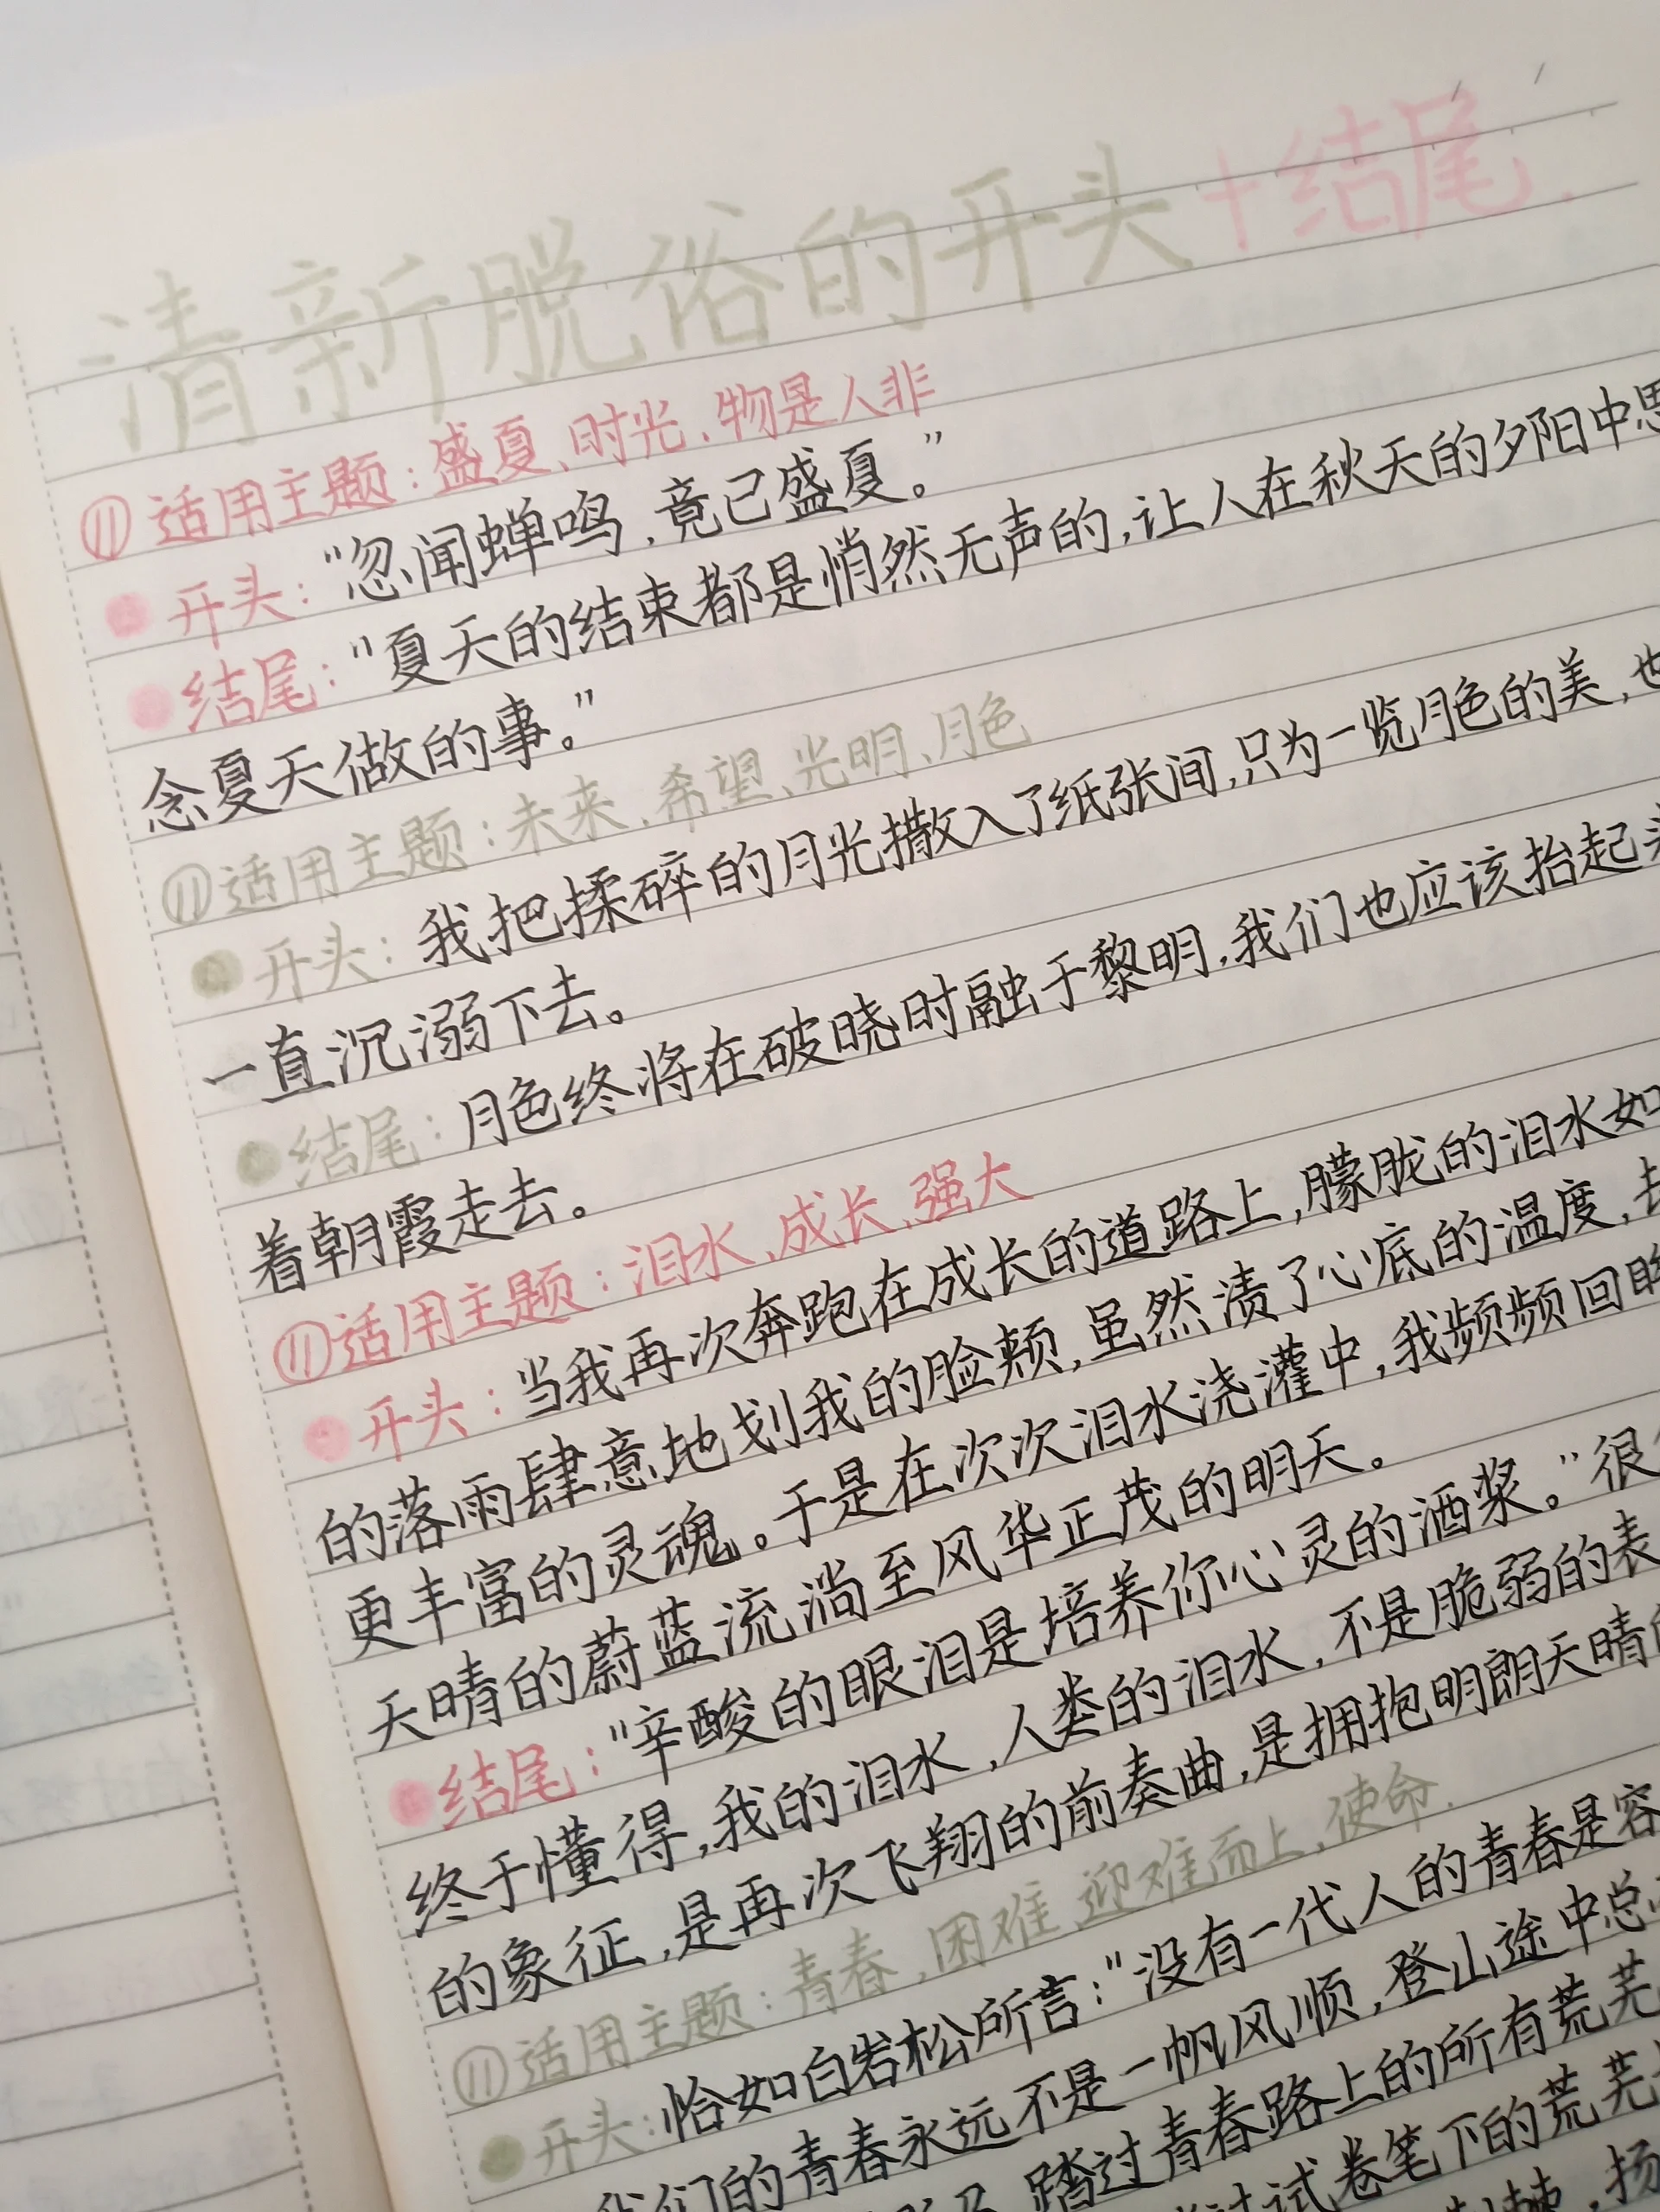 清新脱俗的开头+结尾.
⑪适用主题：盛夏、时光、物是人非
开头："忽闻蝉鸣，竟已盛夏。"
结尾："夏天的结束都是悄然无声的，让人在秋天的夕阳中思
念夏天做的事。"
⑪适用主题：未来、希望、光明、月色
开头：我把揉碎的月光撒入了纸张间，只为一览月色的美，也
一直沉溺下去。
结尾：月色终将在破晓时融于黎明，我们也应该抬起
着朝霞走去。
⑪适用主题：泪水、成长、强大
开头：当我再次奔跑在成长的道路上，朦胧的泪水如
的落雨肆意地划我的脸颊，虽然渍了心底的温度，
更丰富的灵魂。于是在次次泪水浇灌中，我频频回眸
天晴的蔚蓝流淌至风华正茂的明天。
结尾："辛酸的眼泪是培养你心灵的酒浆。"很
终于懂得，我的泪水，人类的泪水，不是脆弱的表
的象征，是再次飞翔的前奏曲，是拥抱明朗天晴的
⑪适用主题：青春，困难，迎难而上，使命.
开头：恰如白岩松所言："没有一代人的青春是容
我们的青春永远不是一帆风顺，登山途中总
踏过青春路上的所有荒芜
试卷笔下的荒芜
扬